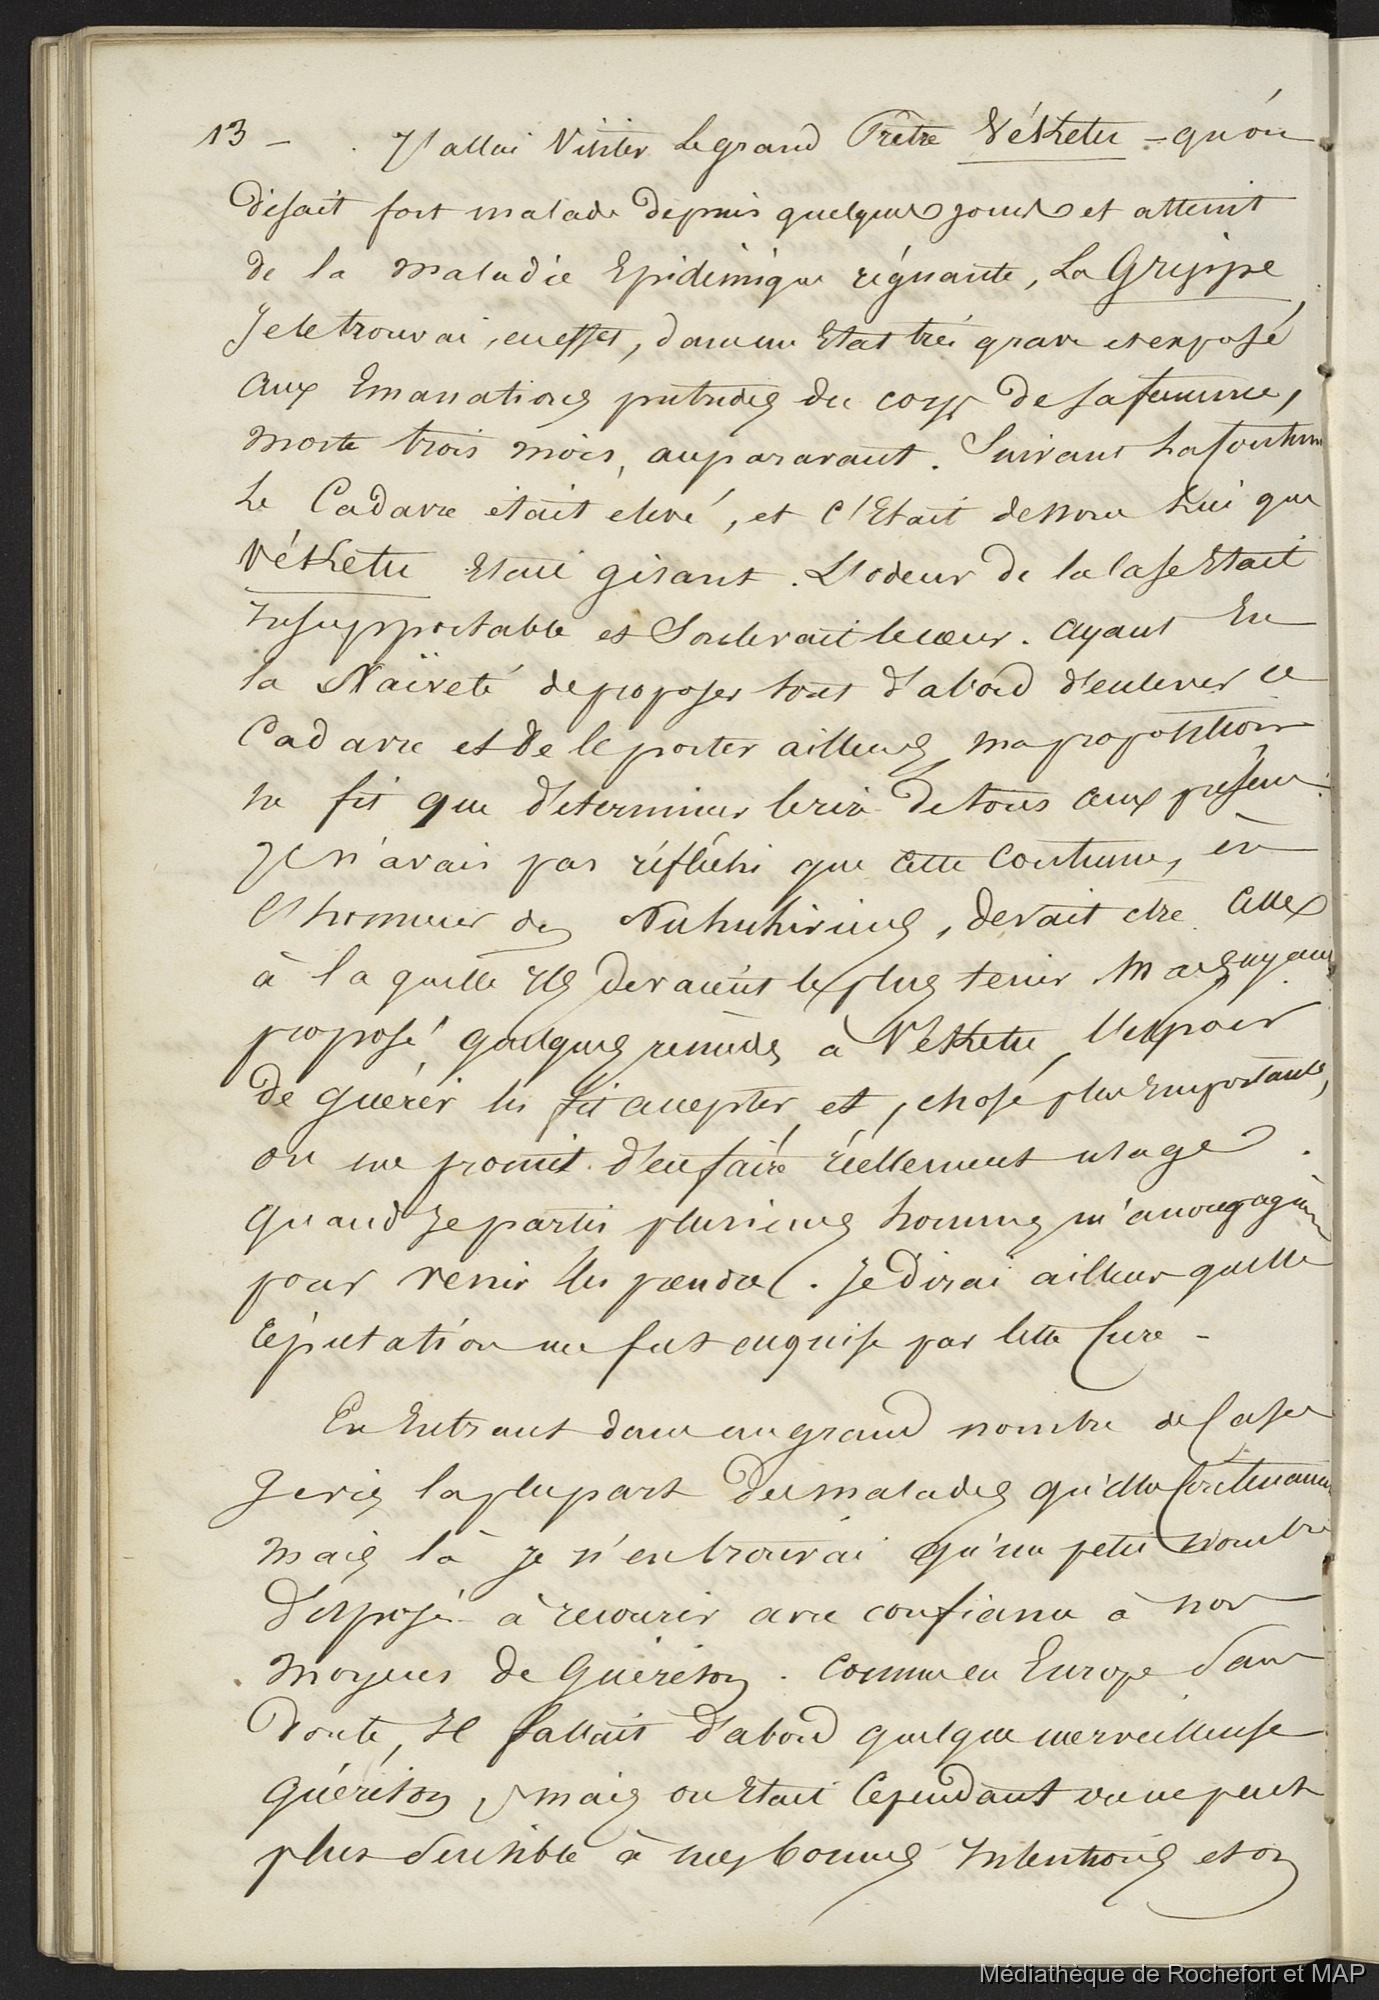 13 - J'allai visiter le grand Prêtre Vékétu - qu'on
disait fort malade depuis quelques jours et atteint
de la maladie Epidémique régnante, La Grippe,
Je le trouvai, en effet, dans un Etat très grave et exposé
aux Emanations putrides du corps de sa femme,
morte trois mois, auparavant. Suivant la Coutume
Le Cadavre était elevé, et c'Etait dessous Lui que
Vékétu Etait gisant. L'odeur de la case Etait
Insupportable et Soulevait le cœur. Ayant Eu
la Naïveté de proposer tout d'abord d'enlever ce
Cadavre et de le porter ailleurs, ma proposition
ne fit que déterminer le rire de tous ceux présens.
Je n'avais pas réfléchi que cette Coutume, en
l'honneur des Nukuhiviens, devait être celle
à laquelle Ils devaient le plus tenir. Mais ayant
proposé quelques remèdes à Vékétu, l'espoir
de guérir les fit accepter, et, chose plus Importante,
on me promit d'en faire réellement usage.
Quand Je partis plusieurs hommes m'accompagnèrent
pour venir les prendre. Je dirai ailleurs quelle
réputation me fut acquise par cette Cure -
En Entrant dans un grand nombre de Cases
Je vis la plupart des malades qu'elles Contenaient
mais là je n'en trouvai qu'un petit nombre
disposé à recourir avec confiance à nos
moyens de Guérison. Comme en Europe sans
doute, Il fallait d'abord quelque merveilleuse
Guérison, mais on Etait Cependant un peu
plus sensible à mes bonnes Intentions et on
Médiathèque de Rochefort et MAP